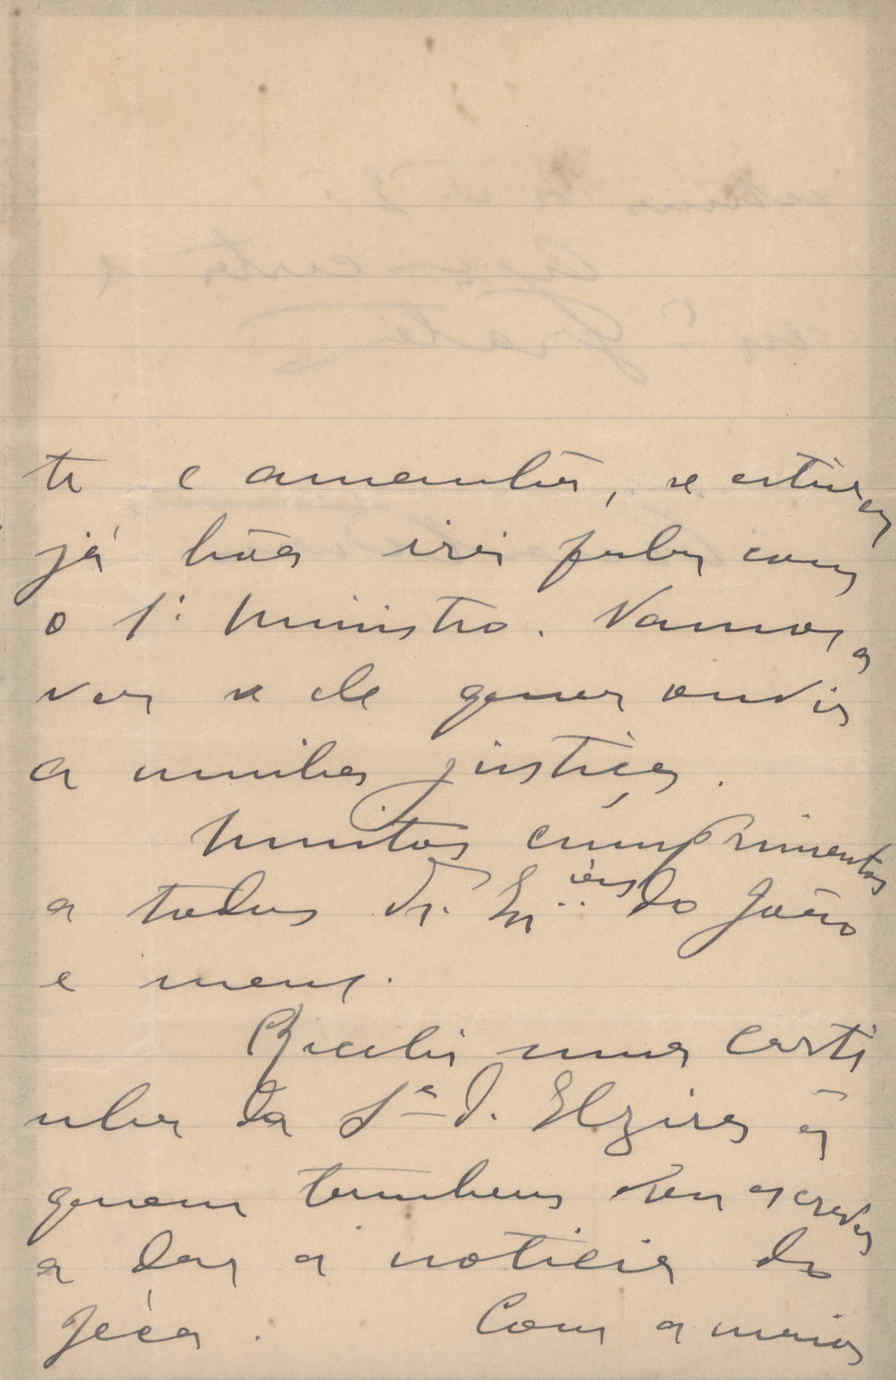 te e amanhã, se estiver
já bôa irei falar com
o Sr. Ministro. Vamos a
ver se ele quer ouvir
a minha justiça.
Muitos cumprimentos
a todos do João
e meus.
Recebi uma carti
nha da Sr.ª D. Elzira á
quem tambem vou escrever
a dar a noticia do
Jéca. Com a maior